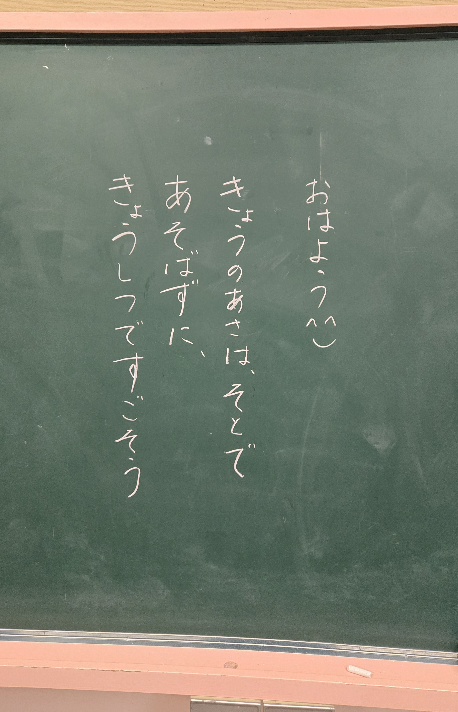 おはよう^^
きょうのあさは、そとで
あそばずに、
きょうしつですごそう